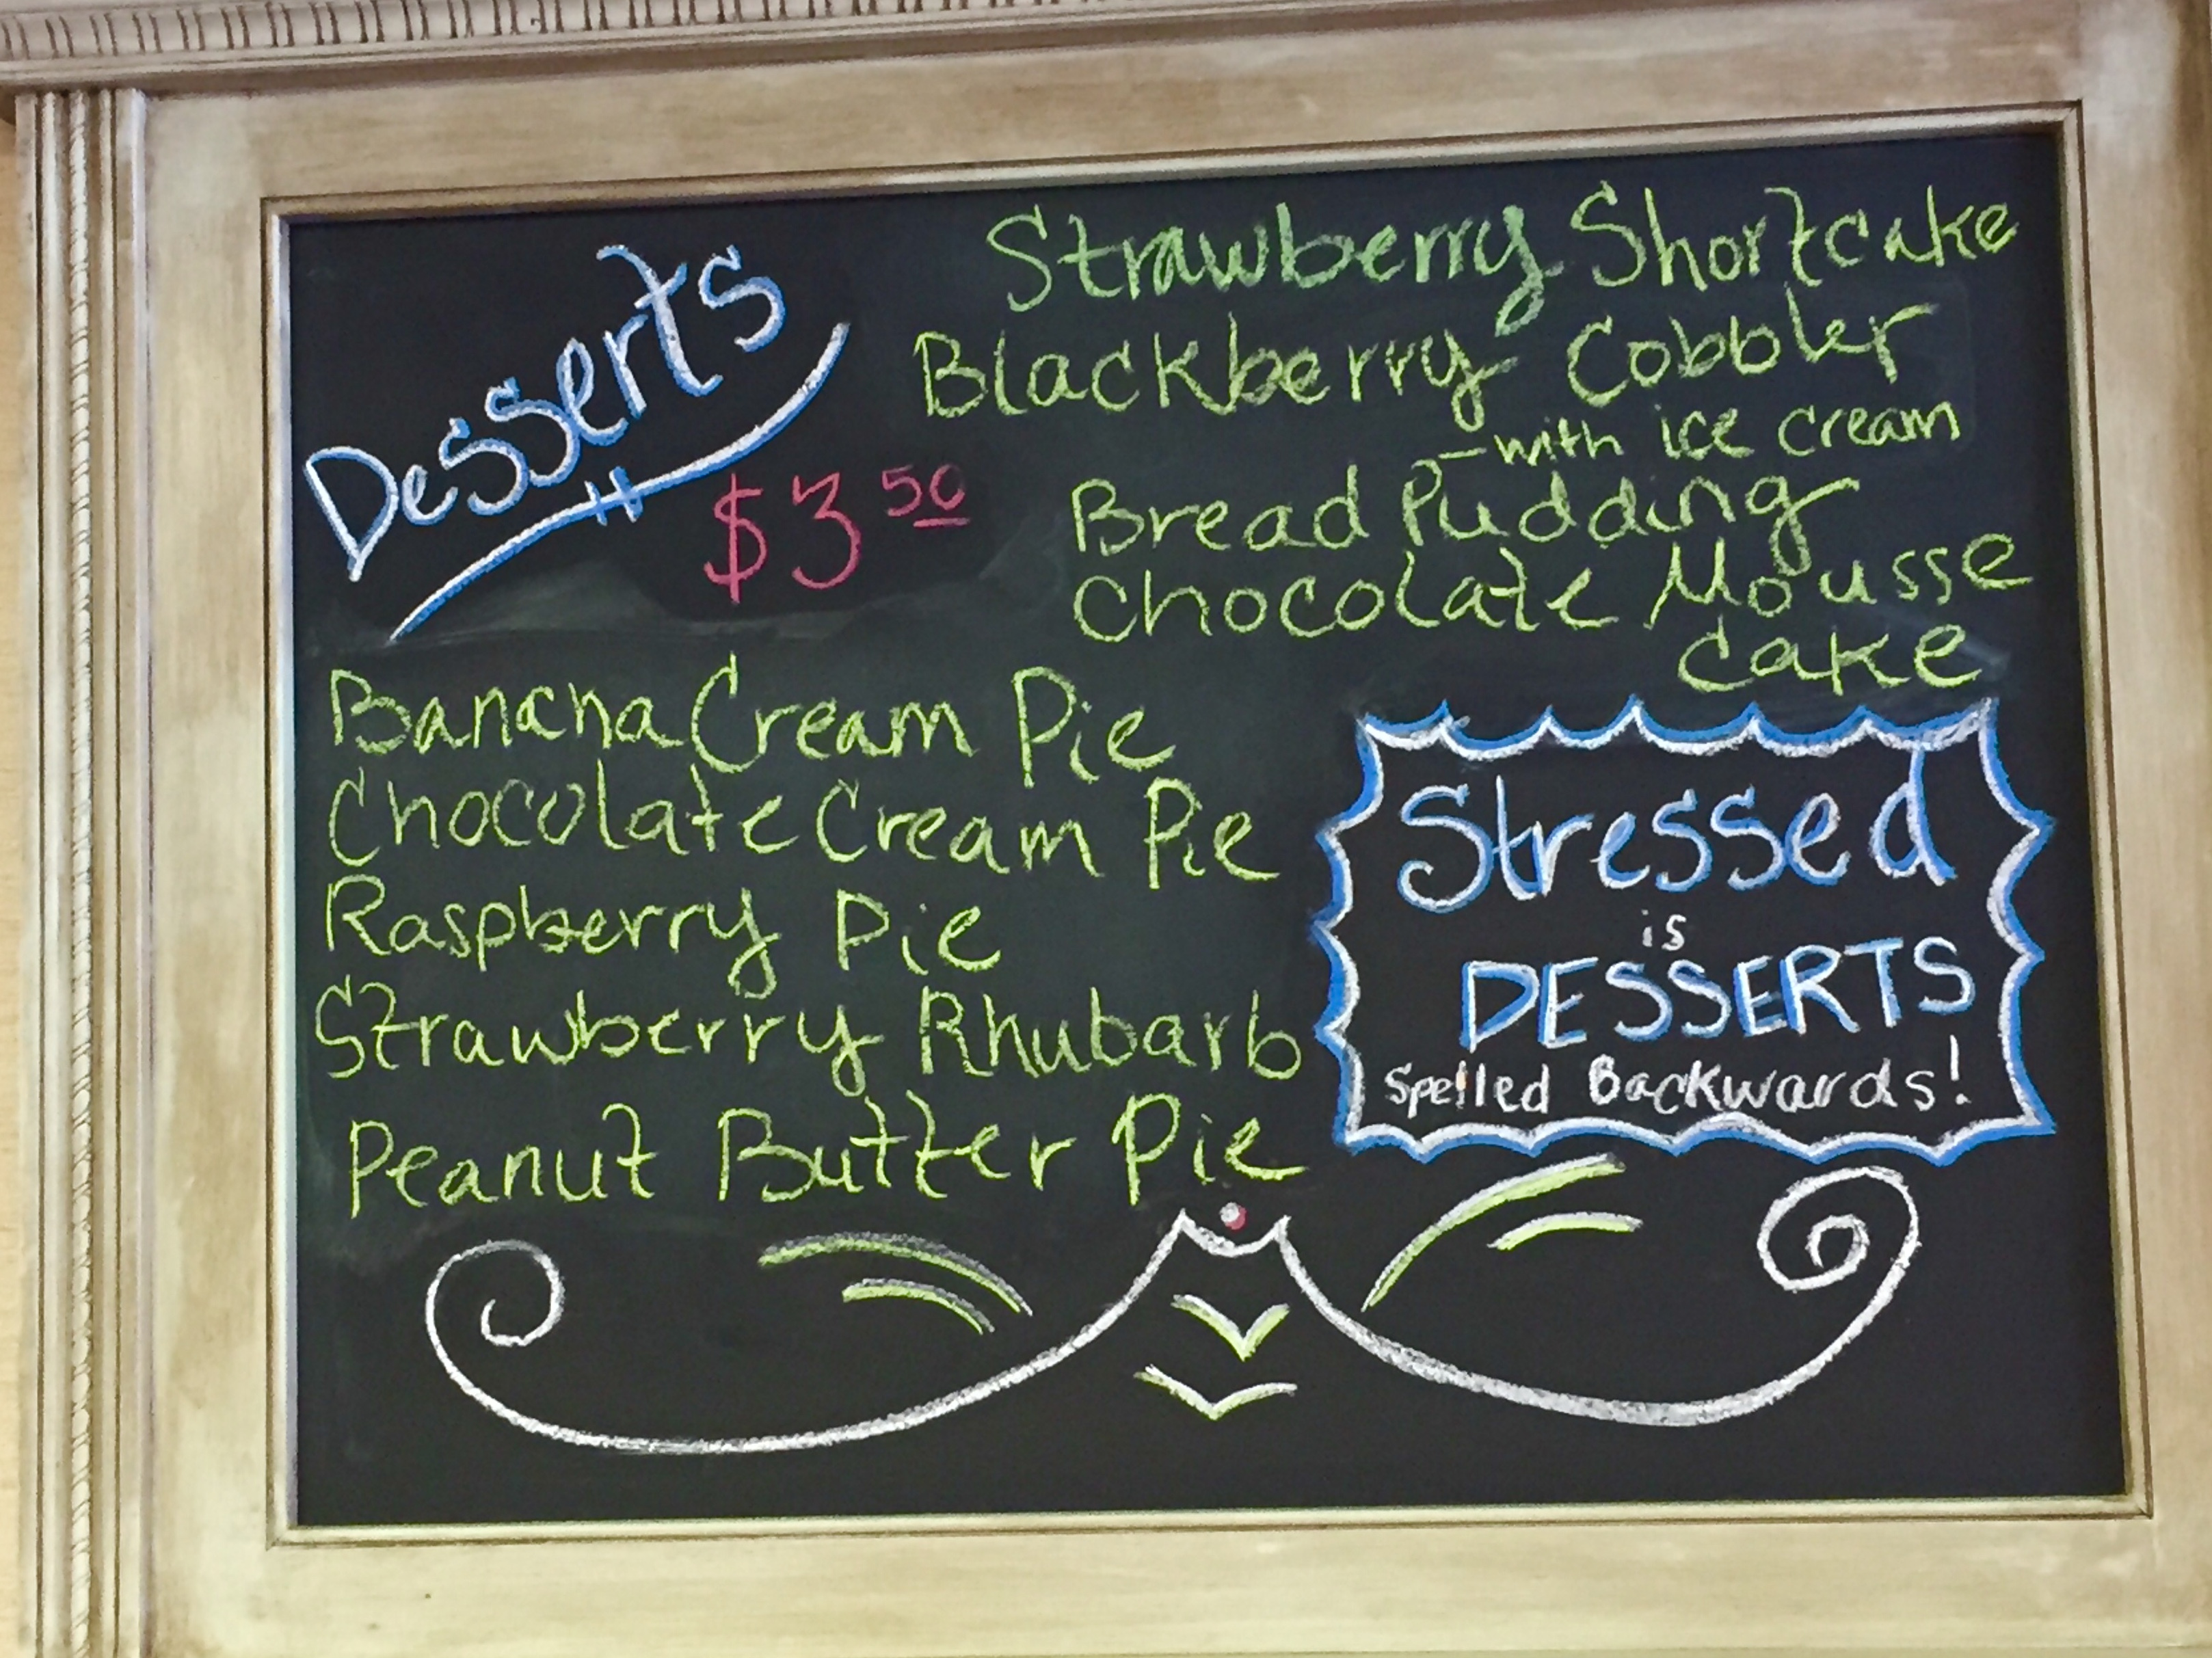 Desserts
$3 50
Strawberry Shortcake
Blackberry Cobbler
- with ice cream
Bread Pudding
Chocolate Mousse
Cake
Banana Cream Pie
Chocolate Cream Pie
Raspberry Pie
Strawberry Rhubarb
Peanut Butter Pie
Stressed
is
DESSERTS
Spelled Backwards!